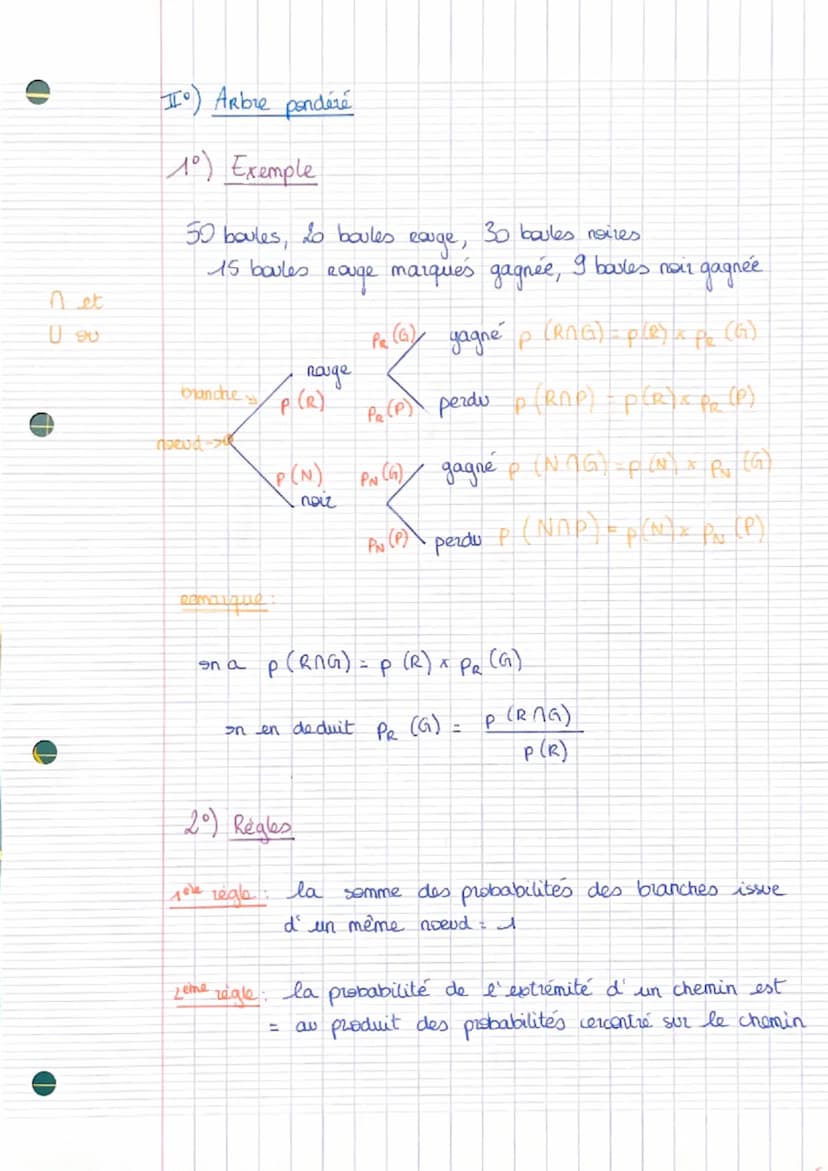 II°) Arbre pondéré
1°) Exemple
50 boules, 20 boules rouge, 30 boules noires
15 boules rouge marqués gagnée, 9 boules noir gagnée
∩ et
U ou
PR (G) gagné p (R∩G) = p(R) x PR (G)
rouge
branche p (R) PR (P) perdu p (R∩P) = p(R) x PR (P)
noeud ->
p (N) PN (G) gagné p (N∩G) = p (N) x PN (G)
noir
PN (P) perdu p (N∩P) = p(N) x PN (P)
remarque :
on a p (R∩G) = p (R) x PR (G)
on en deduit PR (G) = p (R∩G)
p (R)
2°) Régles
1ère régle : la somme des probabilités des branches issue
d'un même noeud = 1
2ème régle : la probabilité de l'extrémité d'un chemin est
= au produit des probabilités cercontré sur le chemin